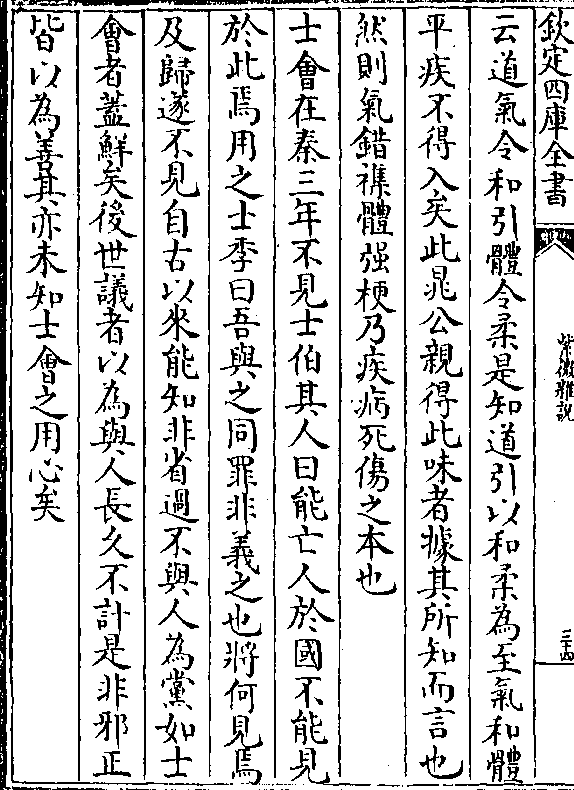 欽定四庫全書
紫微雜說
三十四
云道氣令和引體令柔是知道引以和柔為至氣和體
平疾不得入矣此晁公親得此味者據其所知而言也
然則氣錯襍體强梗乃疾病死傷之本也
士會在秦三年不見士伯其人曰能亡人於國不能見
於此焉用之士季曰吾與之同罪非義之也將何見焉
及歸遂不見自古以來能知非省過不與人為黨如士
會者蓋鮮矣後世議者以為與人長久不計是非邪正
皆以為善其亦未知士會之用心矣